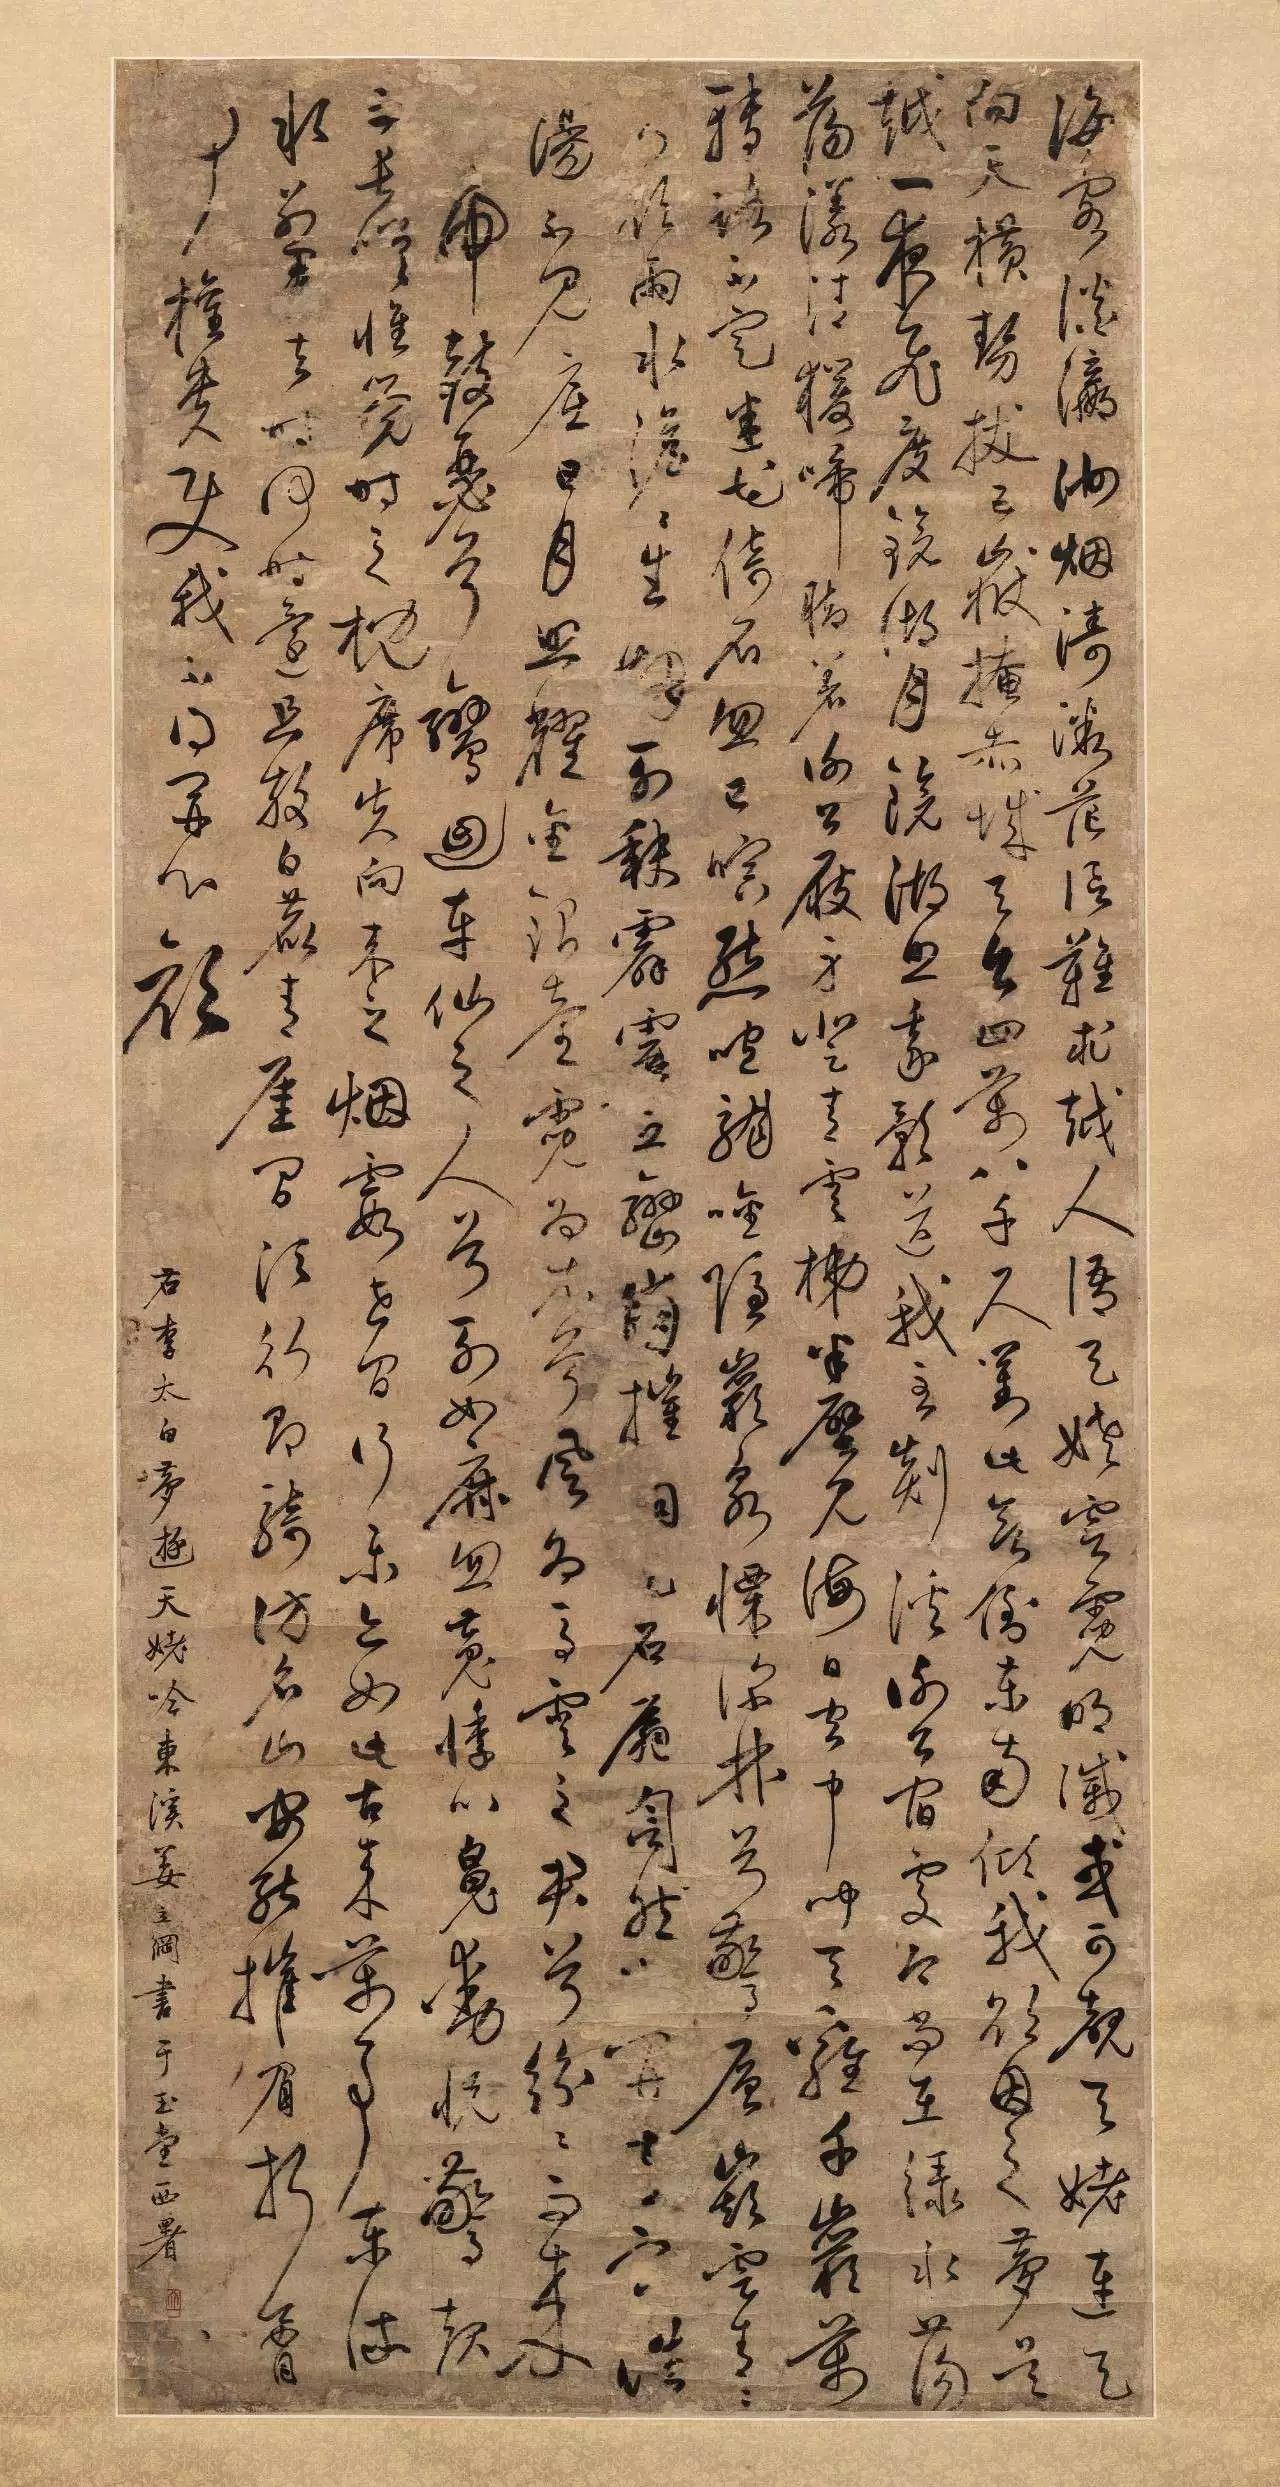 海客談瀛洲烟濤微茫信難求越人語天姥雲霓明滅或可覩天姥連天
向天橫勢拔五嶽掩赤城天台四萬八千尺對此欲倒東南傾我欲因之夢吳
越一夜飛度鏡湖月湖月照我影送我至剡溪謝公宿處今尚在綠水蕩
蕩漾清猿啼脚著謝公屐身登青雲梯半壁見海日空中聞天雞千巖萬
轉路不定迷花倚石忽已暝熊咆龍吟殷巖泉慄深林兮驚層巔雲青青
兮欲雨水澹澹生烟列缺霹靂丘巒崩摧洞天石扉訇然中開青冥浩
蕩不見底日月照耀金銀臺霓為衣兮風為馬雲之君兮紛紛而來下
虎鼓瑟兮鸞回車仙之人兮列如麻忽魂悸以魄動怳驚起
而長嗟惟覺時之枕席失向來之烟霞世間行樂亦如此古來萬事東流
水別君去時何時還且放白鹿青崖間須行即騎訪名山安能摧眉折腰
事權貴使我不得開心顏
右李太白夢遊天姥吟東溪姜立綱書于玉堂西署